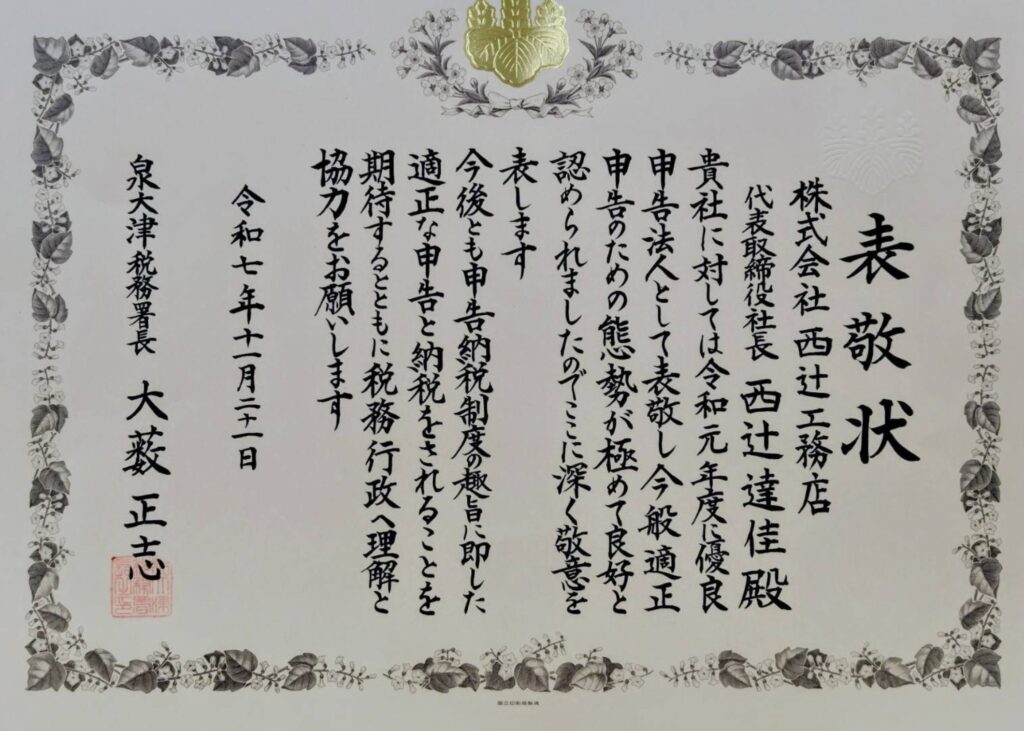 表敬状
株式会社 西辻工務店
代表取締役社長 西辻達佳殿
貴社に対しては令和元年度に優良
申告法人として表敬し今般適正
申告のための態勢が極めて良好と
認められましたのでここに深く敬意を
表します
今後とも申告納税制度の趣旨に即した
適正な申告と納税をされることを
期待するとともに税務行政へ理解と
協力をお願いします
令和七年十一月二十一日
泉大津税務署長 大薮正志
国立印刷局製造